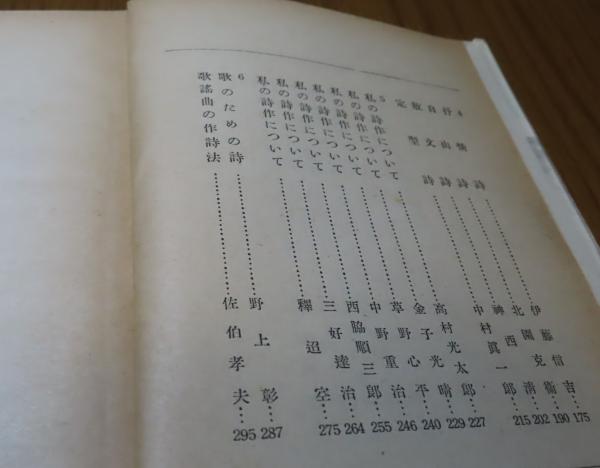 4
抒情詩……伊藤信吉…175
自由詩……北園克衞…190
散文詩……神西清…202
定型詩……中村眞一郎…215
5
私の詩作について……高村光太郎…227
私の詩作について……金子光晴…229
私の詩作について……草野心平…240
私の詩作について……中野重治…246
私の詩作について……西脇順三郎…255
私の詩作について……三好達治…264
私の詩作について……釋迢空…275
6
歌のための詩……野上彰…287
歌謡曲の作詩法……佐伯孝夫…295